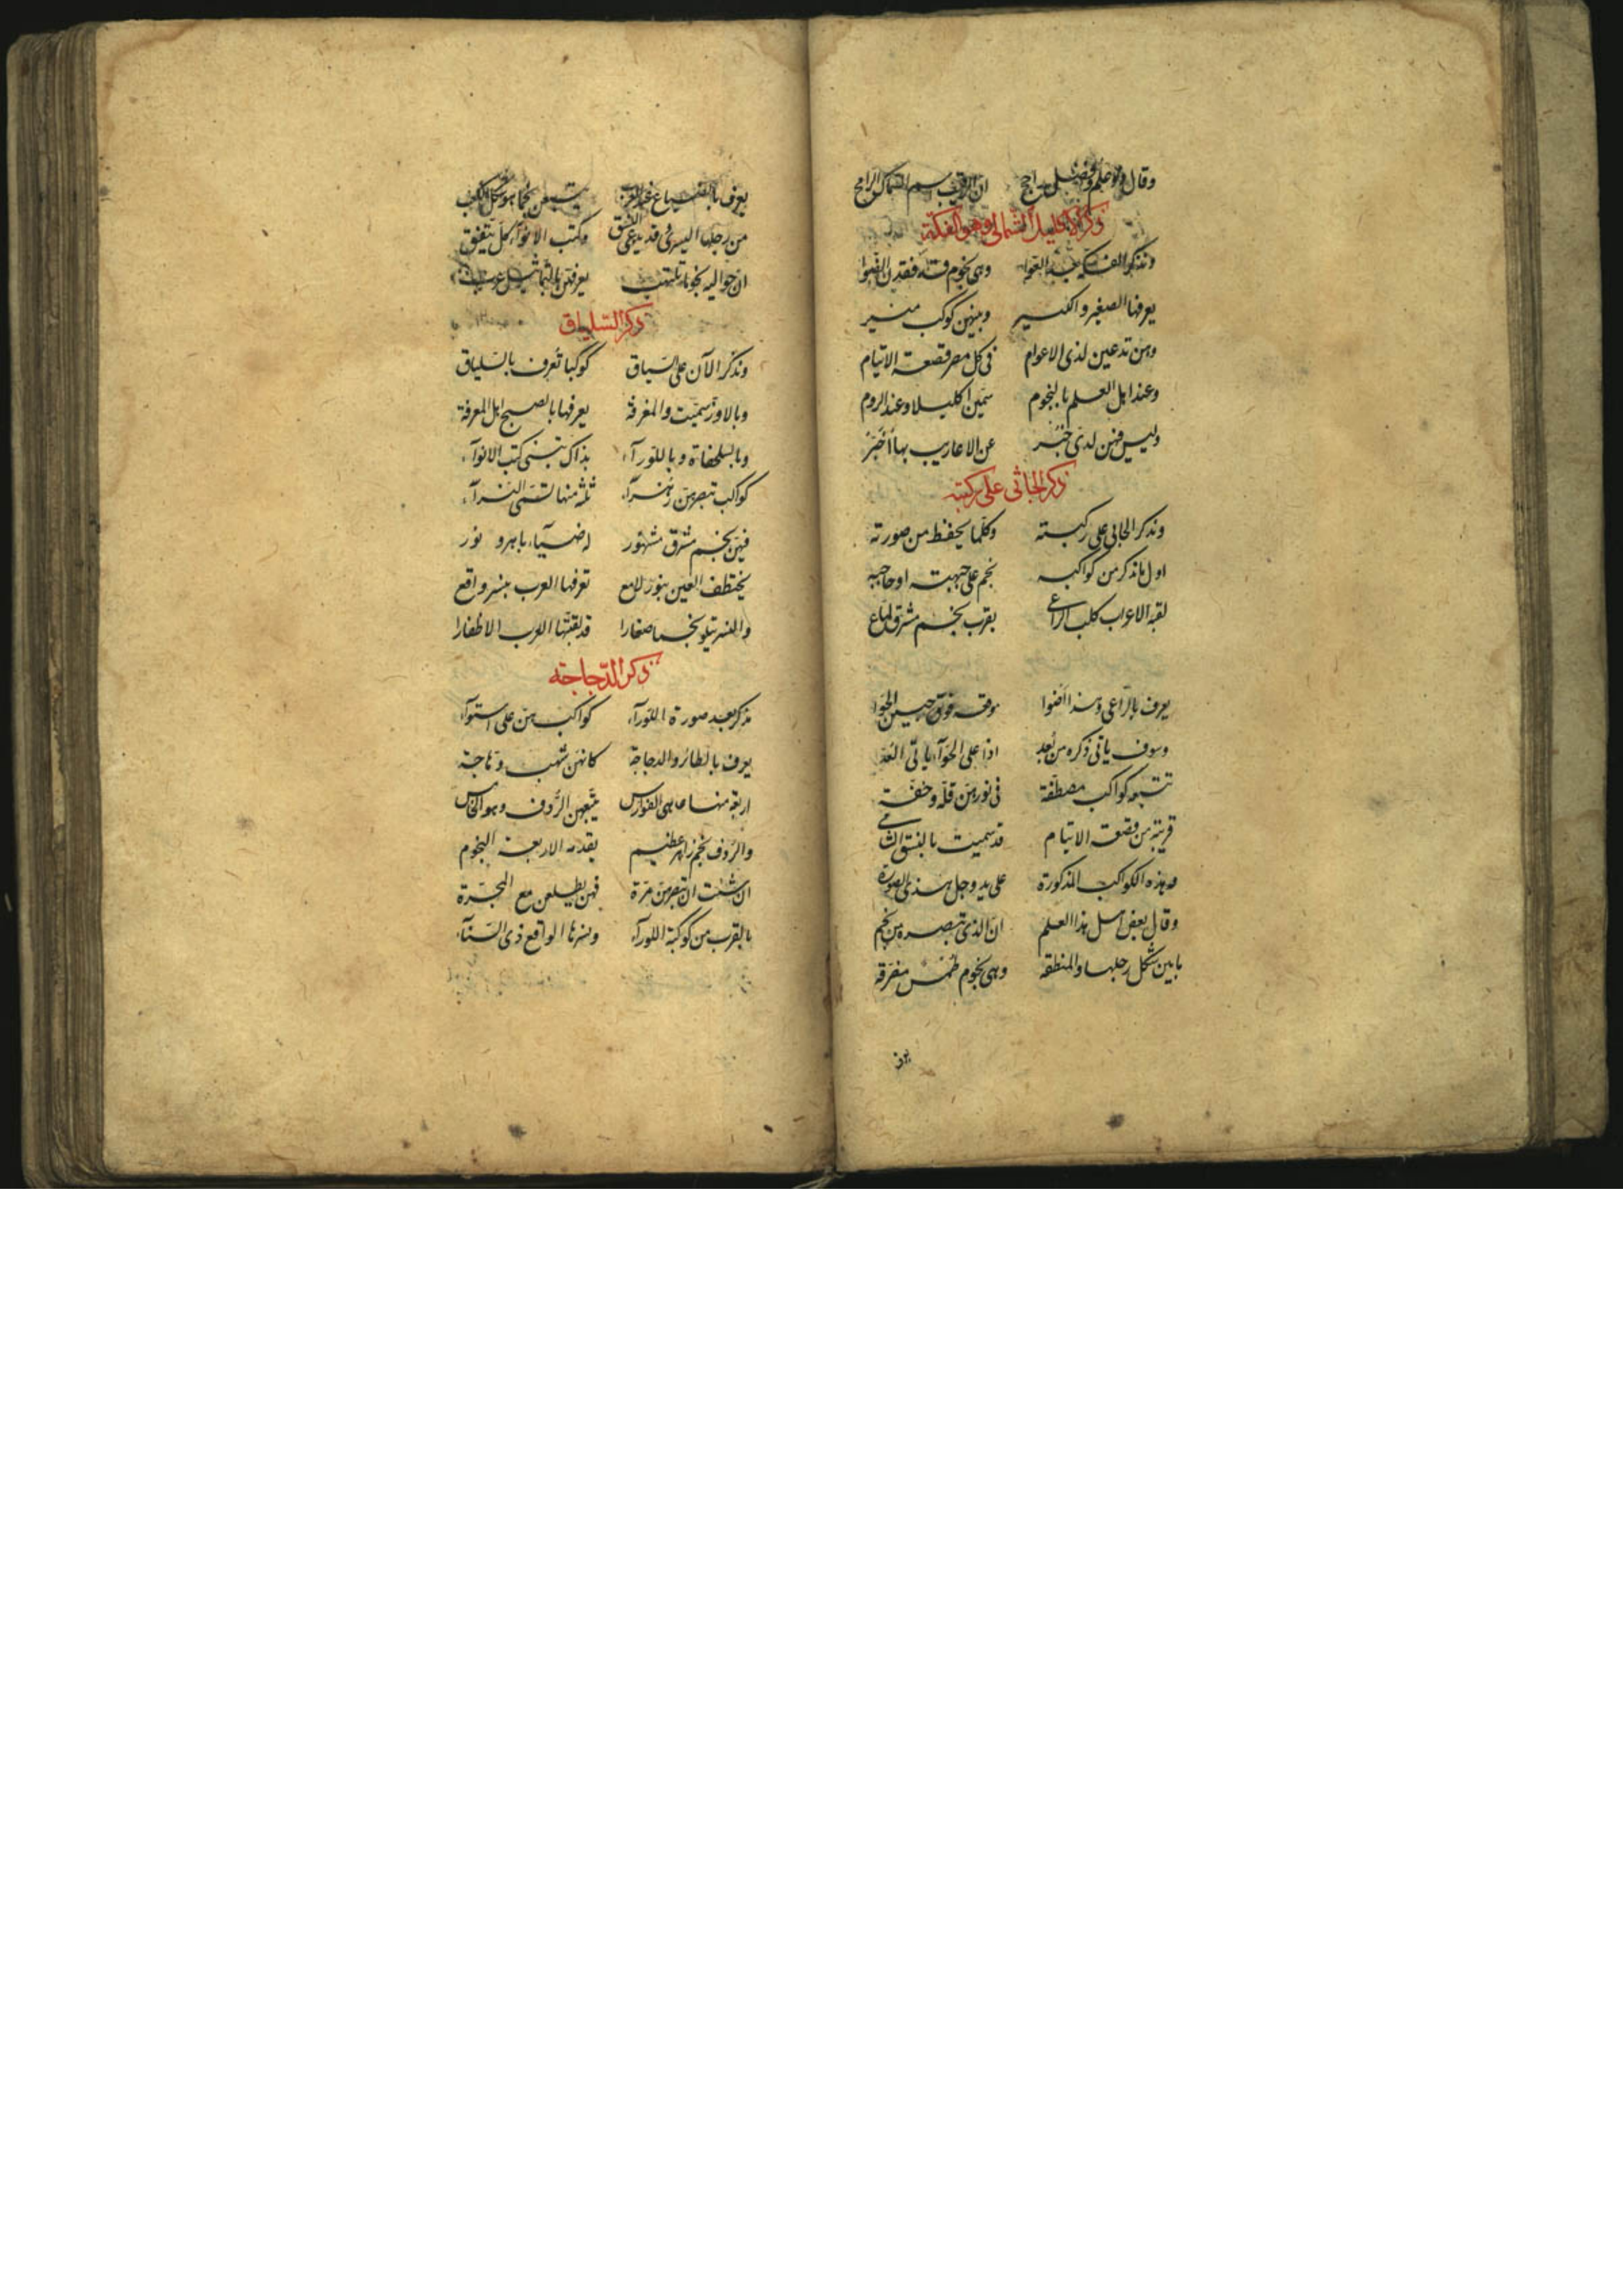 وقال ذو علم وفضل راجح ان الرقيب يسم السماك الرامح
ذكر الاكليل الشمالي وهو الفكة
ونذكر الفكة العوا وهي نجوم قد فقدن الضوا
يعرفها الصغير والكبير وبينهن كوكب منير
وهن تدعين لذى الاعوام فى كل مصر قصعة الايتام
وعند اهل العلم بالنجوم سمين اكليلا وعند الروم
وليس فيهن لدى خبر عن الاعاريب بها أخبر
ذكر الجاثى على ركبته
ونذكر الجاثى على ركبته وكلما يحفظ من صورته
اول ما نذكر من كواكبه نجم على جبهته او حاجبه
لقبه الاعراب كلب الراعى بقرب نجم مشرق لماع
يعرف بالراعى وهذا اضوا موقعه فوق جبين الحوا
وسوف ياتى ذكره من بعد اذا على الحوآء ياتى العد
تتبعه كواكب مصطفة فى نورهن قلة وخفة
قريبة من قصعة الايتام قد سميت بالنسق الشامى
هذه الكواكب المذكورة على يد وجل هذى الصورة
وقال بعض اهل هذا العلم ان الذى تبصره من نجم
ما بين شكل رجلها والمنطقه وهى نجوم طمس مفرقة
يعرف
يعرف بالضباع عند العرب
من رجلها اليسرى قد يدعى وكتب الانوآء كل يتفق
ان حواليه نجوما تلتهب يعرفهن بالتماثيل عرب
ذكر السلياق
ونذكر الآن على السياق كوكبا تعرف بالسلياق
وبالاوز سميت والمغرفة يعرفها بالصبح اهل المعرفة
وبالسلحفاة وباللورآء بذاك تنبى كتب الانوآء
كواكب تبصرهن زهرآء ثلثه منها تسمى النسرآء
فيهن نجم مشرق مشهور له ضيآء باهر ونور
يختطف العين بنور لامع تعرفها العرب بنسر واقع
والنسر يتلو نجما صغارا قد لقبتها العرب الاظفارا
ذكر الدجاجة
نذكر بعد صورة اللورآء كواكب هن على استوآء
يعرف بالطائر والدجاجة كانهن شهب وهاجة
اربعة منها هى الفوارس يتبعهن الردف وهو الخامس
والردف نجم زاهر عظيم يقدمه الاربعة النجوم
ان شئت ان تبصرهن مرة فهن يطلعن مع المجرة
بالقرب من كوكبة اللورآء ونسرها الواقع ذى السنآء